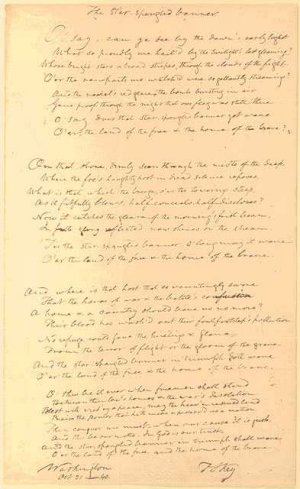 The Star-Spangled Banner
O say, can ye see by the dawn's early light
What so proudly we hail'd by the twilight's last gleaming?
Whose bright stars & broad stripes, through the clouds of the fight
O'er the ramparts we watched were so gallantly streaming?
And the rocket's red glare, the bombs bursting in air
Gave proof through the night that our flag was still there
O say, does that star-spangled banner yet wave
O'er the land of the free & the home of the brave?
On that shore, dimly seen through the mists of the deep
Where the foe's haughty host in dread silence reposes
What is that which the breeze, o'er the towering steep
As it fitfully blows, half conceals, half discloses?
Now it catches the gleam of the morning's first beam
In full glory reflected now shines on the stream
'Tis the star-spangled banner O long may it wave
O'er the land of the free & the home of the brave.
And where is that host that so vauntingly swore
That the havoc of war & the battle's confusion
A home & a country should leave us no more?
Their blood has wash'd out their foul footsteps' pollution
No refuge could save the hireling & slave
From the terror of flight or the gloom of the grave
And the star-spangled banner in triumph doth wave
O'er the land of the free & the home of the brave.
O thus be it ever when freemen shall stand
Between their lov'd homes & the war's desolation
Blest with vict'ry & peace, may the heav'n rescued land
Praise the power that hath made & preserved us a nation
Then conquer we must, when our cause it is just,
And this be our motto - In God is our trust
And the star-spangled banner in triumph shall wave
O'er the land of the free and the home of the brave
Washington
Oct 21 - 40
F S Key